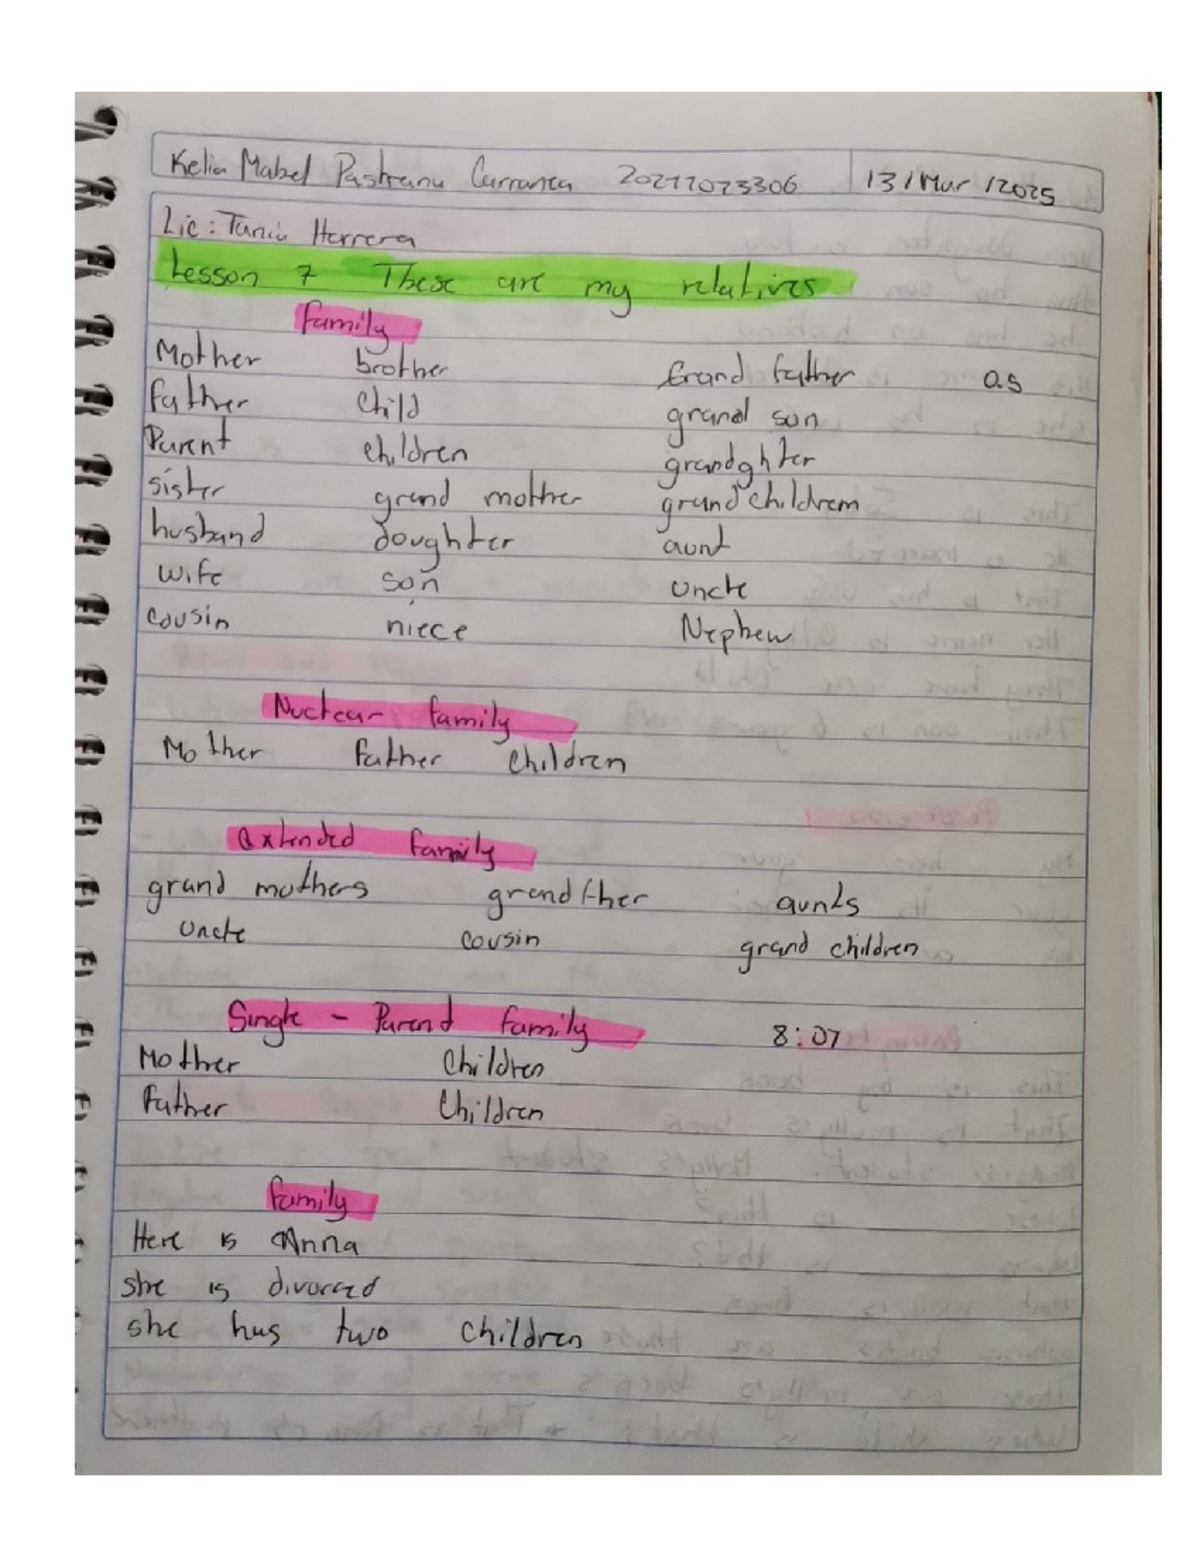 Kelin Mabel Pastrana Carranza 20211023306 13/Mar/2025
Lic: Tania Herrera
Lesson 7 These are my relatives
family
Mother brother Grand father 0.5
father child grand son
Parent children grandghter
sister grand mother grand childrem
husband doughter aunt
wife son uncle
cousin niece Nephew
Nuclear family
Mother father children
extended family
grand mothers grandfther aunts
uncle cousin grand children
Single - Parent family 8:07
Mother children
father children
family
Here is Anna
she is divorced
she has two children